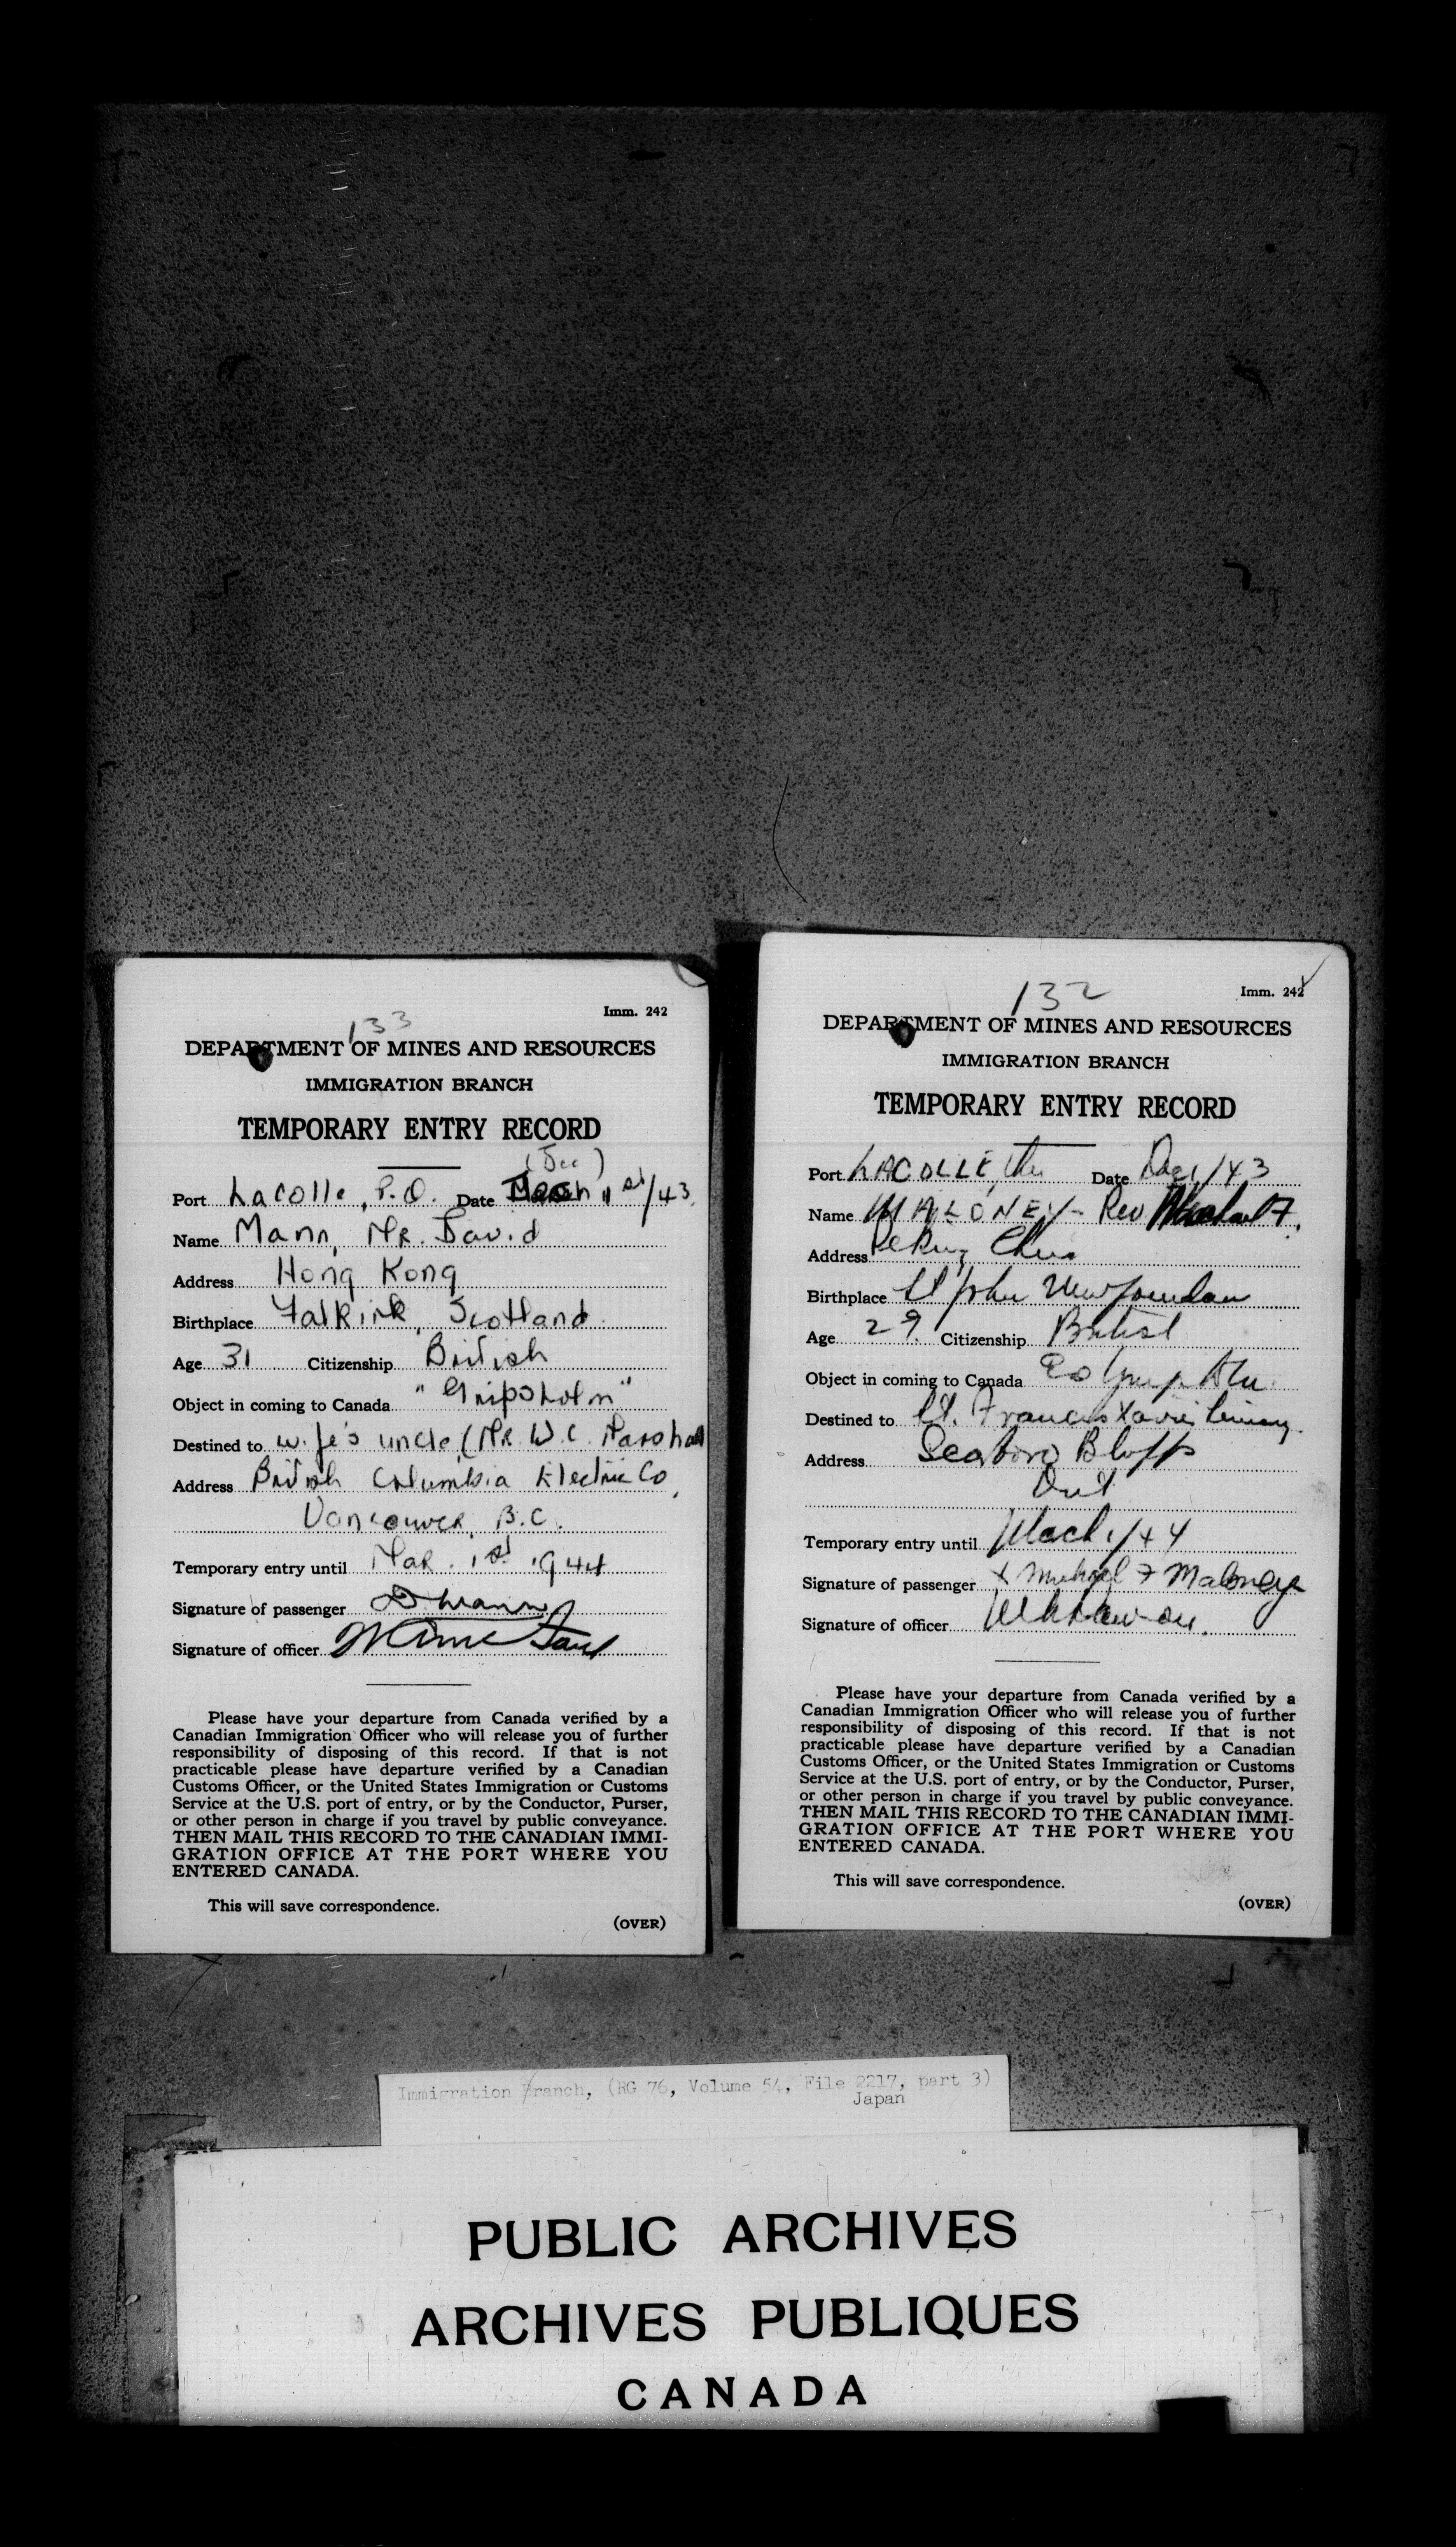 133
Imm. 242
DEPARTMENT OF MINES AND RESOURCES
IMMIGRATION BRANCH
TEMPORARY ENTRY RECORD
(Dec)
Port Lacolle, P.Q. Date 1st/43
Name Mann, Mr. David
Address Hong Kong
Birthplace Falkirk, Scotland
Age 31 Citizenship British
Object in coming to Canada "Gripsholm"
Destined to wife's uncle (Mr. W. C. Marshall
Address British Columbia Electric Co,
Vancouver, B.C.
Temporary entry until Mar. 1st 1944
Signature of passenger D Mann
Signature of officer
Please have your departure from Canada verified by a
Canadian Immigration Officer who will release you of further
responsibility of disposing of this record. If that is not
practicable please have departure verified by a Canadian
Customs Officer, or the United States Immigration or Customs
Service at the U.S. port of entry, or by the Conductor, Purser,
or other person in charge if you travel by public conveyance.
THEN MAIL THIS RECORD TO THE CANADIAN IMMI-
GRATION OFFICE AT THE PORT WHERE YOU
ENTERED CANADA.
This will save correspondence.
(OVER)
132
Imm. 242
DEPARTMENT OF MINES AND RESOURCES
IMMIGRATION BRANCH
TEMPORARY ENTRY RECORD
Port LACOLLE, Date Dec 1/43
Name MALONEY - Rev Michael F.
Address Peking China
Birthplace St John Newfoundlan
Age 29. Citizenship British
Object in coming to Canada
Destined to St. Francis Xavier Seminary.
Address Scarboro Bluffs
Ont
Temporary entry until Mach 1/44
Signature of passenger x Michael F Maloney
Signature of officer
Please have your departure from Canada verified by a
Canadian Immigration Officer who will release you of further
responsibility of disposing of this record. If that is not
practicable please have departure verified by a Canadian
Customs Officer, or the United States Immigration or Customs
Service at the U.S. port of entry, or by the Conductor, Purser,
or other person in charge if you travel by public conveyance.
THEN MAIL THIS RECORD TO THE CANADIAN IMMI-
GRATION OFFICE AT THE PORT WHERE YOU
ENTERED CANADA.
This will save correspondence.
(OVER)
Immigration Branch, (RG 76, Volume 54, File 2217, part 3)
Japan
PUBLIC ARCHIVES
ARCHIVES PUBLIQUES
CANADA